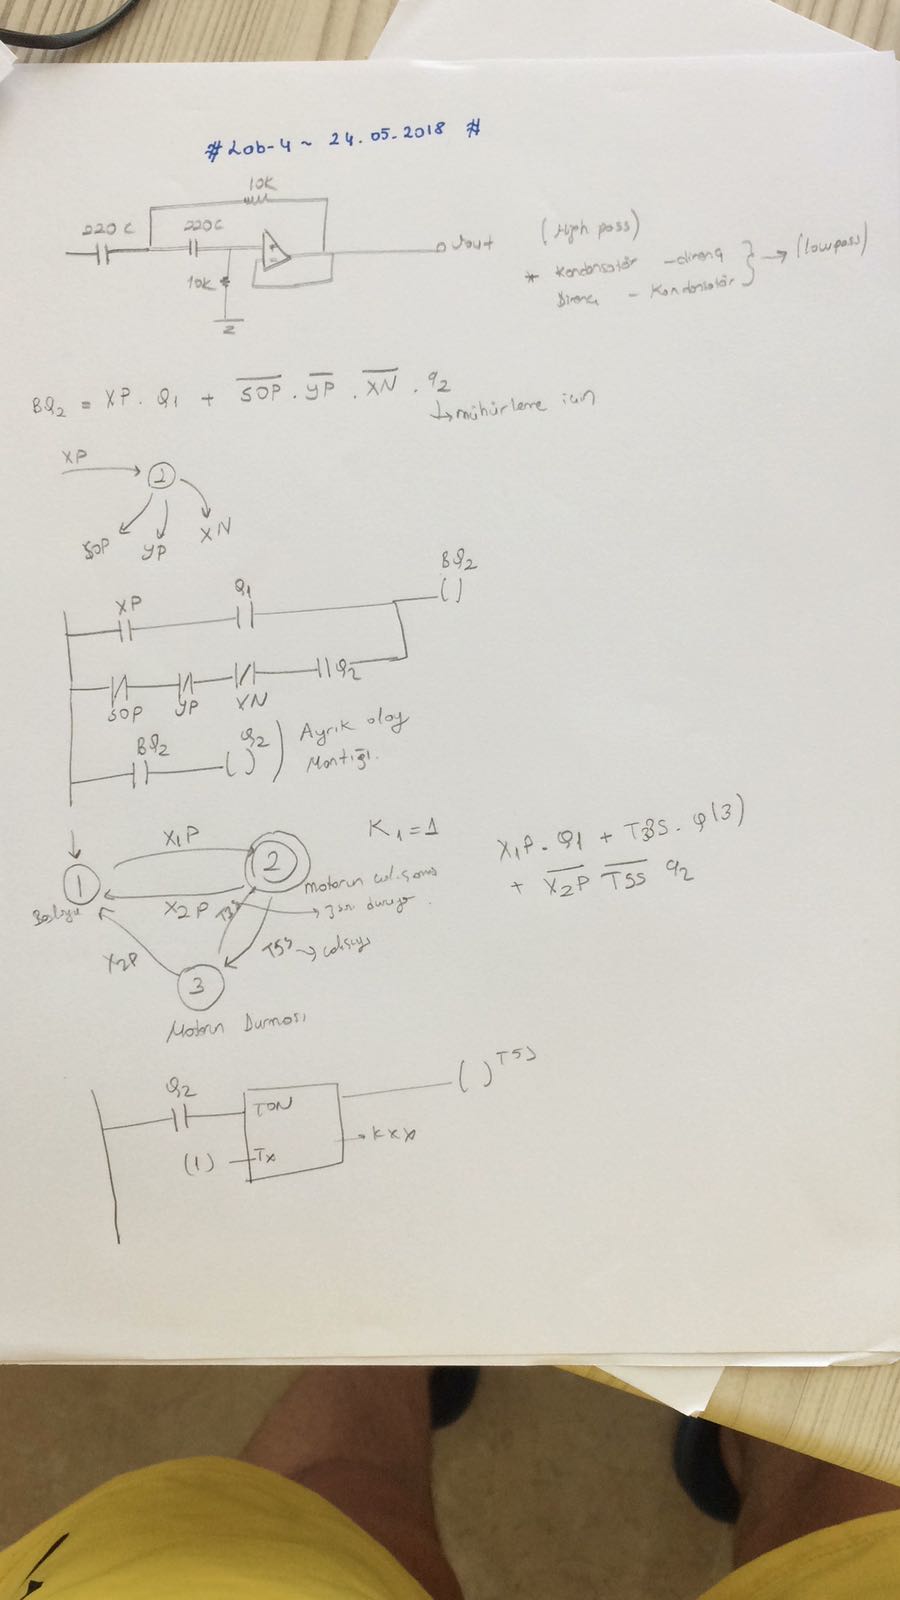 # Lab-4 ~ 24.05.2018 #
10K
220C 220C
Vout
10K
(High pass)
* Kondansatör - direnç
Direnç - Kondansatör } → (lowpass)
BQ2 = XP . Q1 + S̅O̅P̅ . Y̅P̅ . X̅N̅ . q2
↳ mühürleme için
XP
2
SOP YP XN
BQ2
XP Q1 ( )
SOP YP XN Q2
BQ2 Q2 ( )
Ayrık olay
Mantığı.
X1P K1 = 1
1 2
Başlangıç
X2P
Motorun çalışması
T3S → 3 sn duruyor.
T5S → çalışıyor
X2P
3
Motorun Durması
X1P . Q1 + T3S . Q(3)
+ X̅2̅P̅ T̅5̅S̅ q2
Q2
TON ( ) T5S
(1) Tx → Kxx